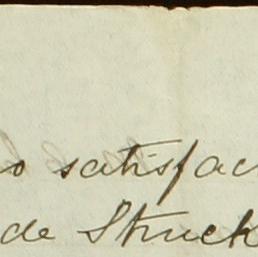 o satisfac
de Struck